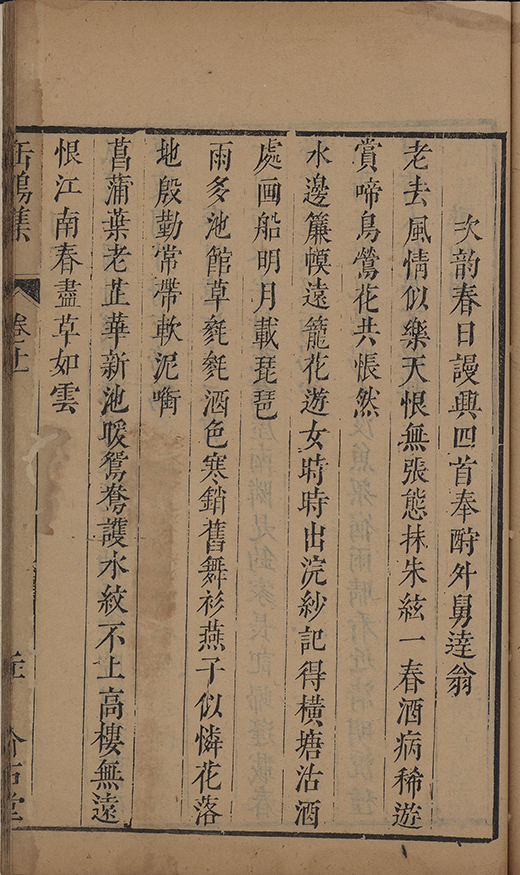 次韵春日謾興四首奉酧外舅達翁
老去風情似樂天恨無張態抹朱絃一春酒病稀遊
賞啼鳥鶯花共悵然
水邊簾幙遠籠花遊女時時出浣紗記得橫塘沽酒
處画船明月載琵琶
雨多池館草毿毿酒色寒銷舊舞衫燕子似憐花落
地殷勤常帶軟泥㘅
菖蒲葉老芷華新池暖鴛鴦護水紋不上高樓無遠
恨江南春盡草如雲
卷十一